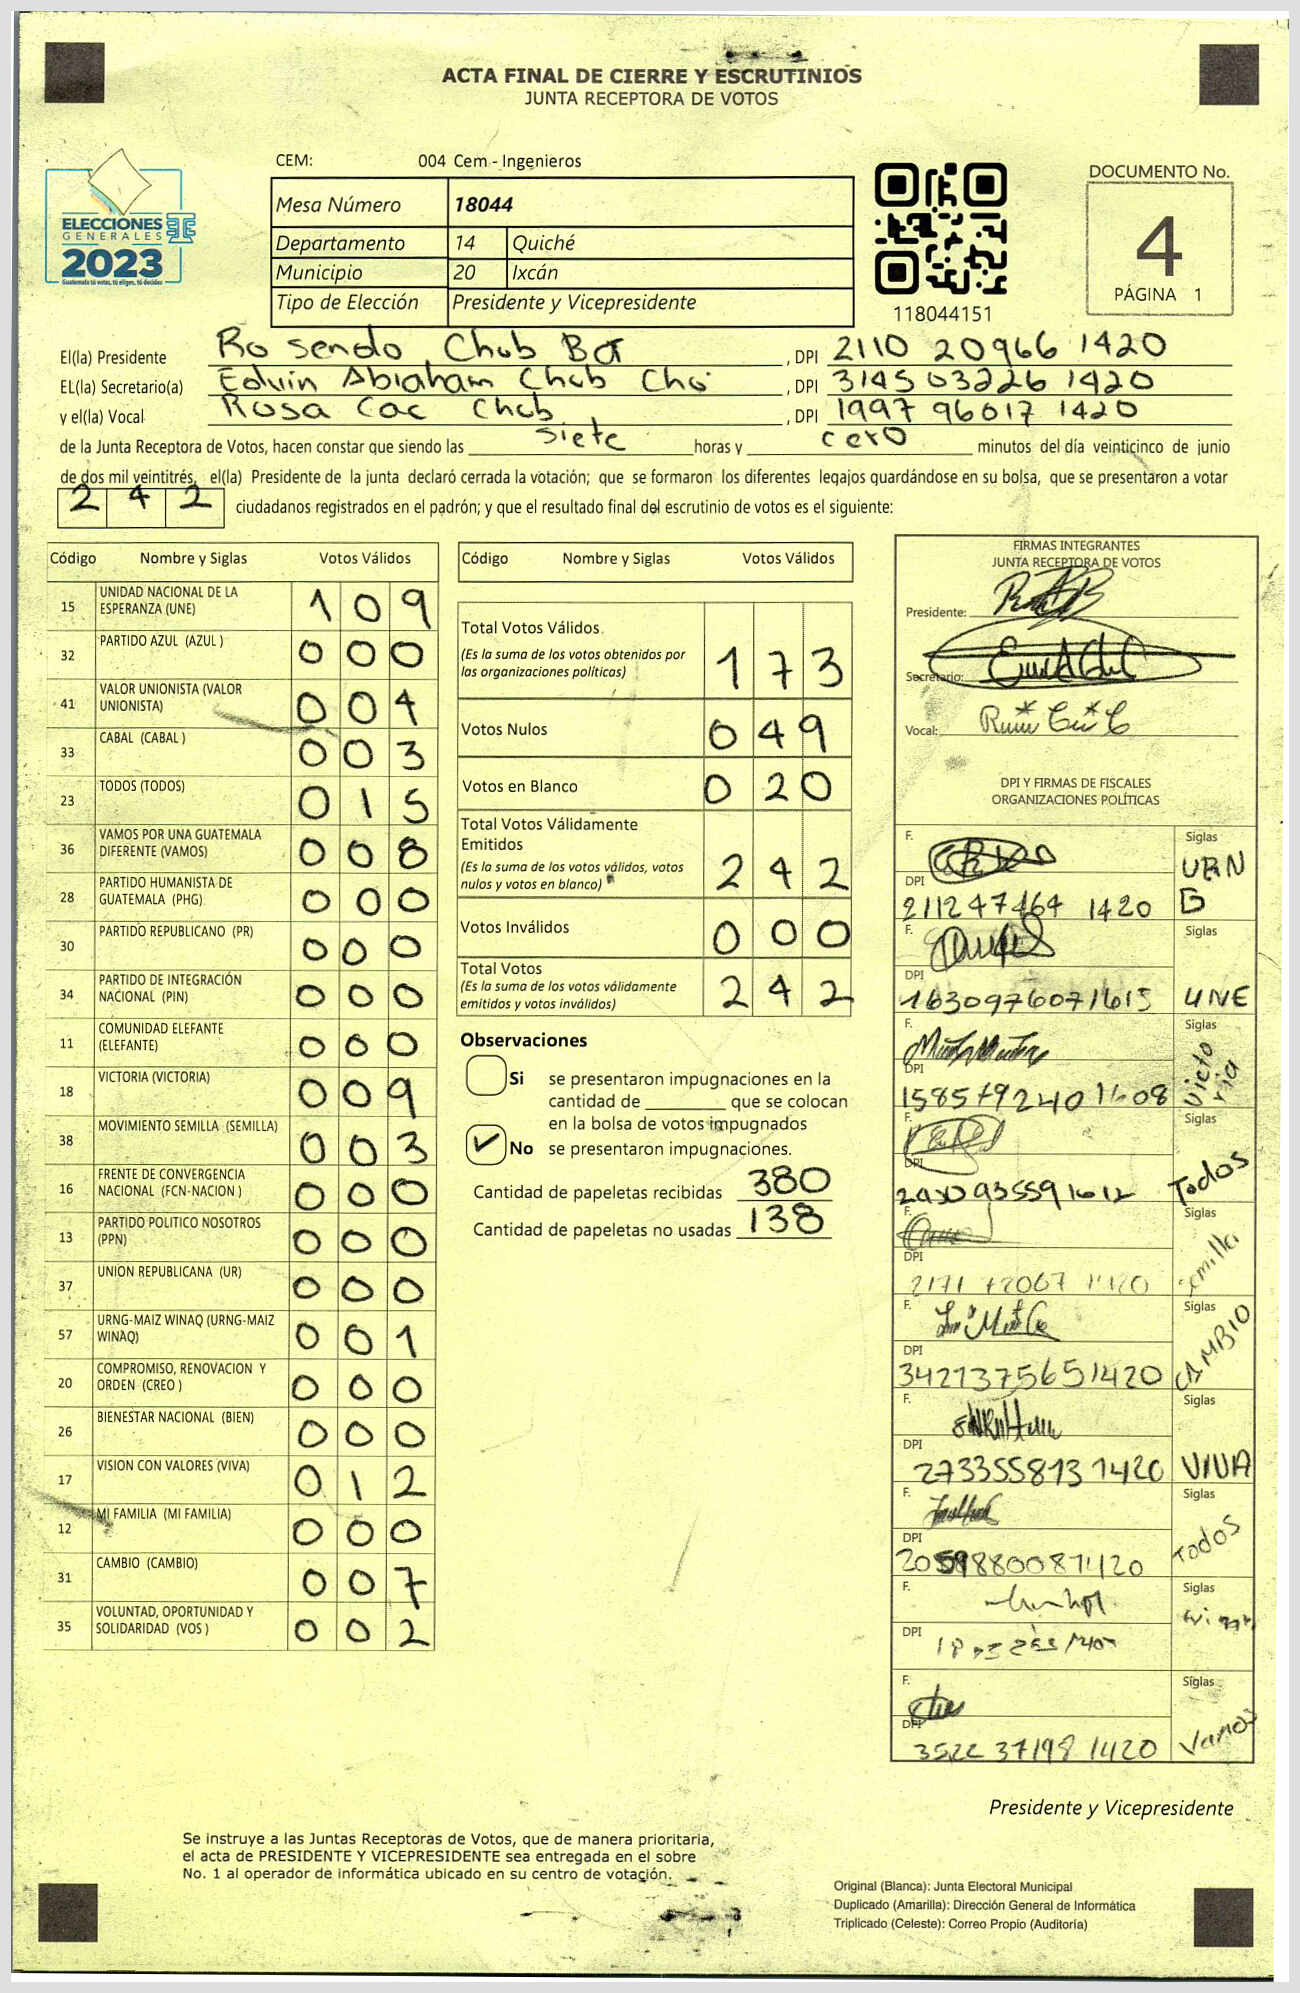 ACTA FINAL DE CIERRE Y ESCRUTINIOS
JUNTA RECEPTORA DE VOTOS
CEM: 004 Cem - Ingenieros
ELECCIONES
GENERALES
2023
Guatemala tú votas, tú eliges, tú decides
Mesa Número 18044
Departamento 14 Quiché
Municipio 20 Ixcán
Tipo de Elección Presidente y Vicepresidente
118044151
DOCUMENTO No.
4
PÁGINA 1
El(la) Presidente Rosendo Chub Bot , DPI 2110 20966 1420
EL(la) Secretario(a) Edwin Abraham Chub Cho , DPI 3145 03226 1420
y el(la) Vocal Rosa Cac Chub , DPI 1997 96017 1420
de la Junta Receptora de Votos, hacen constar que siendo las siete horas y cero minutos del día veinticinco de junio
de dos mil veintitrés, el(la) Presidente de la junta declaró cerrada la votación; que se formaron los diferentes legajos guardándose en su bolsa, que se presentaron a votar
242 ciudadanos registrados en el padrón; y que el resultado final del escrutinio de votos es el siguiente:
Código Nombre y Siglas Votos Válidos
15 UNIDAD NACIONAL DE LA ESPERANZA (UNE) 109
32 PARTIDO AZUL (AZUL ) 000
41 VALOR UNIONISTA (VALOR UNIONISTA) 004
33 CABAL (CABAL ) 003
23 TODOS (TODOS) 015
36 VAMOS POR UNA GUATEMALA DIFERENTE (VAMOS) 008
28 PARTIDO HUMANISTA DE GUATEMALA (PHG) 000
30 PARTIDO REPUBLICANO (PR) 000
34 PARTIDO DE INTEGRACIÓN NACIONAL (PIN) 000
11 COMUNIDAD ELEFANTE (ELEFANTE) 000
18 VICTORIA (VICTORIA) 009
38 MOVIMIENTO SEMILLA (SEMILLA) 003
16 FRENTE DE CONVERGENCIA NACIONAL (FCN-NACION ) 000
13 PARTIDO POLITICO NOSOTROS (PPN) 000
37 UNION REPUBLICANA (UR) 000
57 URNG-MAIZ WINAQ (URNG-MAIZ WINAQ) 001
20 COMPROMISO, RENOVACION Y ORDEN (CREO ) 000
26 BIENESTAR NACIONAL (BIEN) 000
17 VISION CON VALORES (VIVA) 012
12 MI FAMILIA (MI FAMILIA) 000
31 CAMBIO (CAMBIO) 007
35 VOLUNTAD, OPORTUNIDAD Y SOLIDARIDAD (VOS ) 002
Código Nombre y Siglas Votos Válidos
Total Votos Válidos 173
(Es la suma de los votos obtenidos por
las organizaciones politicas)
Votos Nulos 049
Votos en Blanco 020
Total Votos Válidamente
Emitidos 242
(Es la suma de los votos válidos, votos
nulos y votos en blanco)
Votos Inválidos 000
Total Votos 242
(Es la suma de los votos válidamente
emitidos y votos inválidos)
Observaciones
Si se presentaron impugnaciones en la
cantidad de ________ que se colocan
en la bolsa de votos impugnados
✓ No se presentaron impugnaciones.
Cantidad de papeletas recibidas 380
Cantidad de papeletas no usadas 138
FIRMAS INTEGRANTES
JUNTA RECEPTORA DE VOTOS
Presidente:
Secretario:
Vocal:
DPI Y FIRMAS DE FISCALES
ORGANIZACIONES POLÍTICAS
F. Siglas
DPI
211247464 1420
F. Siglas
DPI
1630976071615 UNE
F. Siglas Victoria
DPI
F. Siglas
DPI
Todos
F. Siglas
DPI
F. Siglas CAMBIO
DPI
3421375651420
F. Siglas
DPI
273355813 1420 VIVA
F. Siglas Todos
DPI
F. Siglas
DPI
F. Siglas
DPI
3522 37198 1420 Vamos
Presidente y Vicepresidente
Se instruye a las Juntas Receptoras de Votos, que de manera prioritaria,
el acta de PRESIDENTE Y VICEPRESIDENTE sea entregada en el sobre
No. 1 al operador de informática ubicado en su centro de votación.
Original (Blanca): Junta Electoral Municipal
Duplicado (Amarilla): Dirección General de Informática
Triplicado (Celeste): Correo Propio (Auditoría)